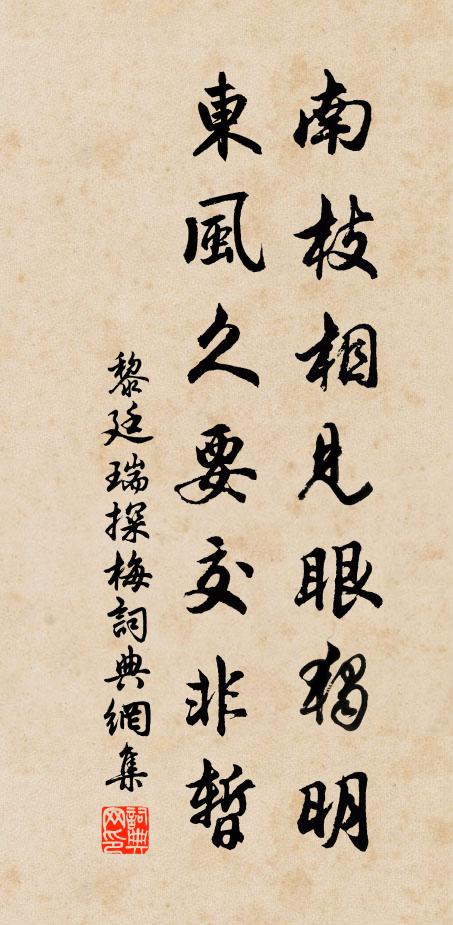 南枝相見眼獨明
東風久要交非暫
黎廷瑞探梅詞典網集
詞典網印